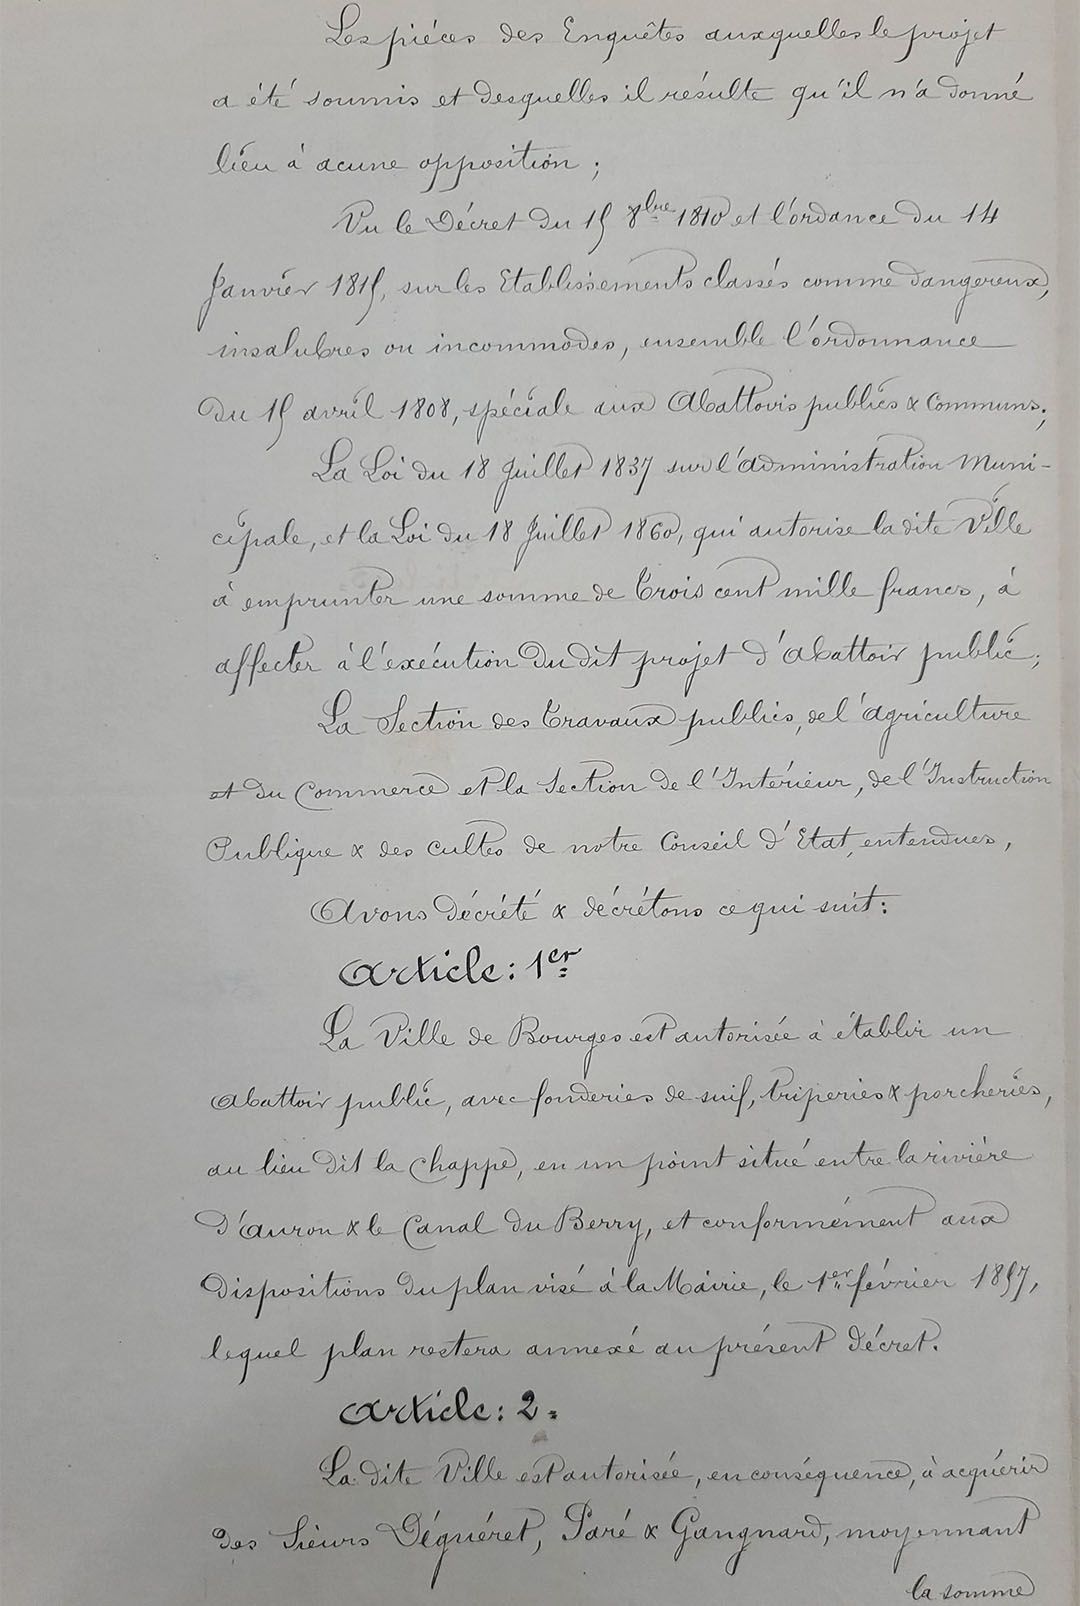 Les piéces des Enquêtes auxquelles le projet
a été soumis et desquelles il résulte qu'il n'a donné
lieu à acune opposition ;
Vu le Décret du 15 8bre 1810 et l'ordance du 14
Janvier 1815, sur les Etablissements classés comme dangereux,
insalubres ou incommodes, ensemble l'ordonnance
du 15 avril 1808, spéciale aux Abattoirs publics & Communs,
La Loi du 18 Juillet 1837 sur l'administration Muni-
cipale, et la Loi du 18 Juillet 1860, qui autorise la dite Ville
à emprunter une somme de Trois cent mille francs, à
affecter à l'exécution du dit projet d'Abattoir public ;
La Section des Travaux publics, de l'agriculture
et du Commerce et la Section de l'Intérieur, de l'Instruction
Publique & des cultes de notre Conseil d'Etat, entendues,
Avons décrété & décrétons ce qui suit :
Article : 1er
La Ville de Bourges est autorisée à établir un
Abattoir public, avec fonderies de suif, triperies & porcheries,
au lieu dit la Chappe, en un point situé entre la rivière
d'Auron & le Canal du Berry, et conformément aux
dispositions du plan visé à la Mairie, le 1er février 1857,
lequel plan restera annexé au présent décret.
Article : 2.
La dite Ville est autorisée, en conséquence, à acquérir
des Sieurs Déguéret, Paré & Gangnard, moyennant
la somme